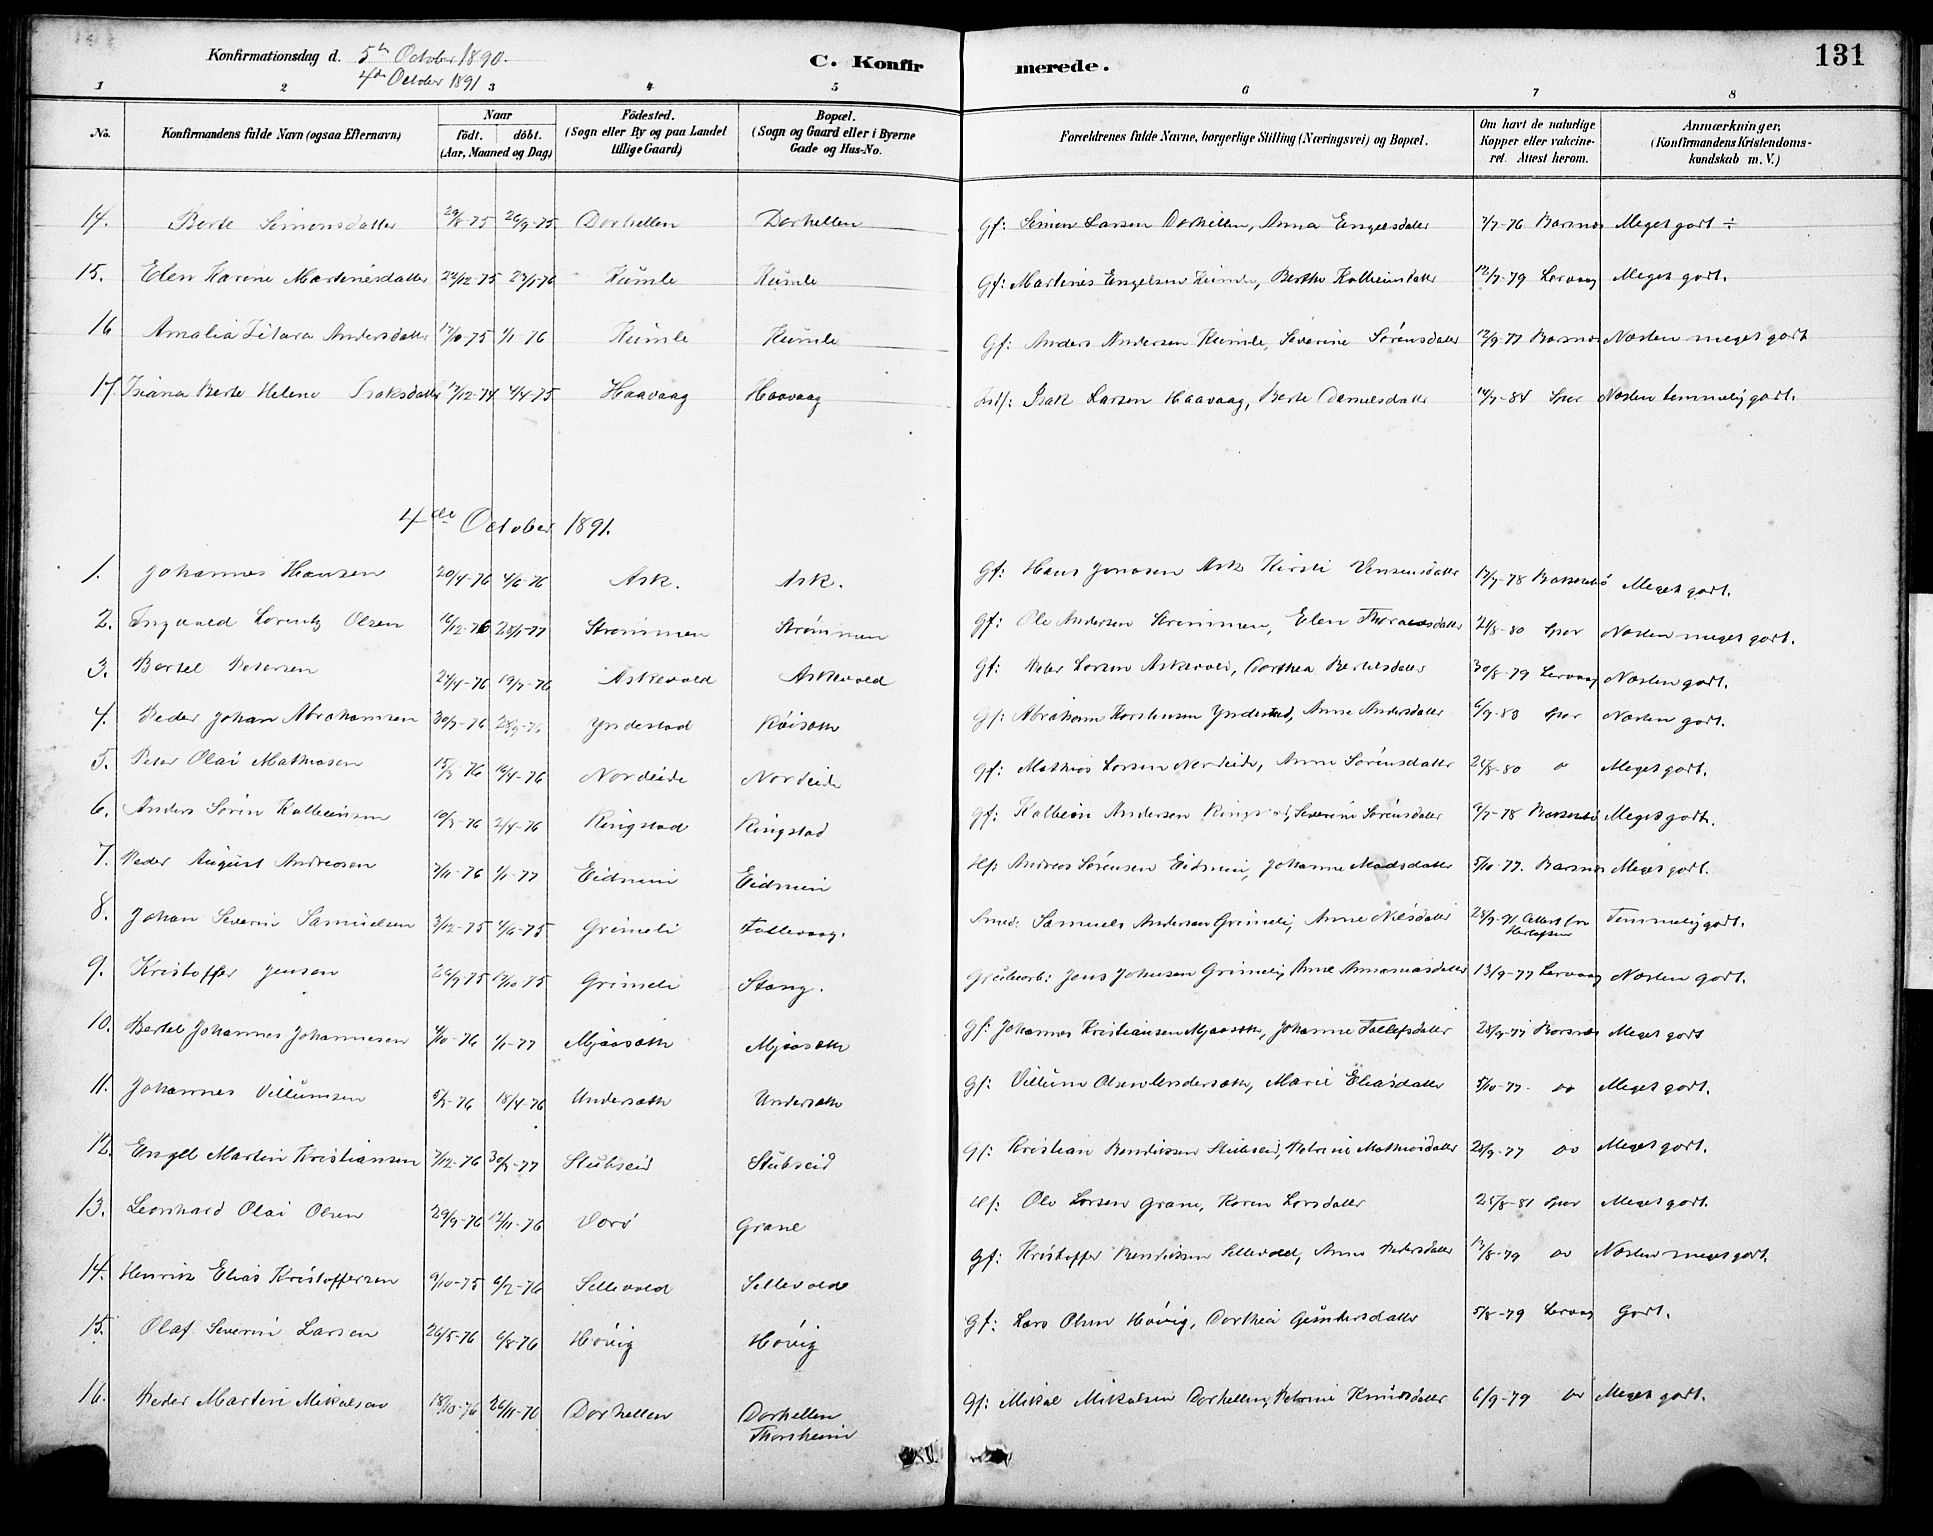 Konfirmationsdag d. 5te October 1890.
4de October 1891
C. Konfirmerede.
131
1 2 3 4 5 6 7 8
No. Konfirmandens fulde Navn (ogsaa Efternavn) Naar födt. döbt. (Aar, Maaned og Dag) Födested. (Sogn eller By og paa Landet tillige Gaard) Bopæl. (Sogn og Gaard eller i Byerne Gade og Hus-No. Forældrenes fulde Navne, borgerlige Stilling (Næringsvei) og Bopæl. Om havt de naturlige Kopper eller vakcineret. Attest herom. Anmærkninger. (Konfirmandens Kristendomskundskab m. V.)
14. Berte Simonsdatter 29/8-75 26/9-75 Dorhellen Dorhellen Gf: Simon Larsen Dorhellen, Anna Engelsdatter 7/7-76 Barsnes Meget godt ÷
15. Elen Karine Martinesdatter Humle Humle Gf: Martines Engelsen Humle, Berthe Kolbeinsdatter 12/7-79 Lervaag Meget godt.
16 Amalia Andersdatter 1/1-76 Humle Humle Gf: Anders Andersen Humle, Severine Sørensdatter 12/9-77 Barsnes Næsten meget godt
17. Berte Helene Isaksdatter 17/12-74 4/4-75 Haavaag Haavaag Isak Larsen Haavaag, Berte Danielsdatter 14/7-84 Spor Næsten temmelig godt.
4de October 1891.
1. Johannes Hansen 20/4-76 4/6-76 Ask. Ask. Gf: Hans Jonasen Ask Kirsti 17/7-78 Meget godt.
2. Ingvald Lorentz Olsen 16/12-76 28/1-77 Strømmen Strømmen Gf: Ole Andersen Strømmen, Elen 24/8-80 Spor Næsten meget godt.
3. Bertel Petersen 24/4-76 19/7-76 Askevold Askevold Gf: Peter Larsen Askevold, Dorthea Bertelsdatter 30/8-79 Lervaag Næsten godt.
4. Peder Johan Abrahamsen 30/7-76 Yndestad Röisæth Gf: Abraham Karstensen Yndestad, Anne Andersdatter 6/9-83 Spor Næsten godt.
5. Peter Olai Mathiasen 15/3-76 16/4-76 Nordeide Nordeide Gf: Mathias Larsen Nordeide, Anne Sørensdatter 24/8-80 Meget godt.
6. Anders Sørin Kolbeinsen 10/3-76 2/4-76 Ringstad Ringstad Gf: Kolbein Andersen Severine Sørensdatter 6/7-78 Meget godt.
7. Peder August Andreasen 7/11-76 1/1-77 Eidmin Eidmin Hf: Andreas Sørensen Eidmin, Johanne Madsdatter 5/10-77. Barsnes Meget godt.
8. Johan Severin Samuelsen 3/12-75 Grimeli Follevaag. Smed: Samuel Andersen Grimeli, Anne Nilsdatter Temmelig godt.
9. Kristoffer Jensen 26/9-75 17/10-75 Grimeli Stang. Grubearb: Jens Johnsen Grimeli, Anne Ananiasdatter 13/9-77 Lervaag Næsten godt.
10. Bertel Johannes Johannesen 4/10-76 1/1-77 Mjaasæth Mjaasæth Gf: Johannes Kristiansen Mjaasæth, Johanne Tollefsdatter 28/9-77 Barsnes Meget godt
11. Johannes Villumsen 5/3-76 18/4-76 Undersæth Undersæth Gf: Villum Olsen Undersæth, Marie Eliasdatter 5/10-77. Meget godt.
12. Engel Martin Kristiansen 7/12-76 Stubseid Stubseid Gf: Kristian Bendiksen Stubseid, Petrine Mathiasdatter 28/9-77 Meget godt.
13. Leonhard Olai Olsen 29/9-76 12/11-76 Værö Grane Ole Larsen Grane, Karen Larsdatter 25/8-81 Spor Meget godt.
14. Henrik Elias Kristoffersen 9/10-75 6/2-76 Sellevold Sellevold Gf: Kristoffer Bendiksen Sellevold, Anne Pedersdatter 13/8-79 Næsten meget godt.
15. Olaf Severin Larsen 26/5-76 6/8-76 Hövig Hövig Gf: Lars Olsen Hövig, Dorthea Gundersdatter 5/8-79 Lervaag Godt.
16. Peder Martin Mikalsen 18/10-76 26/11-76 Dorhellen Dorhellen Thorsheim Gf: Mikal Mikalsen Dorhellen, Petrine Knudsdatter 6/9-79 Meget godt.